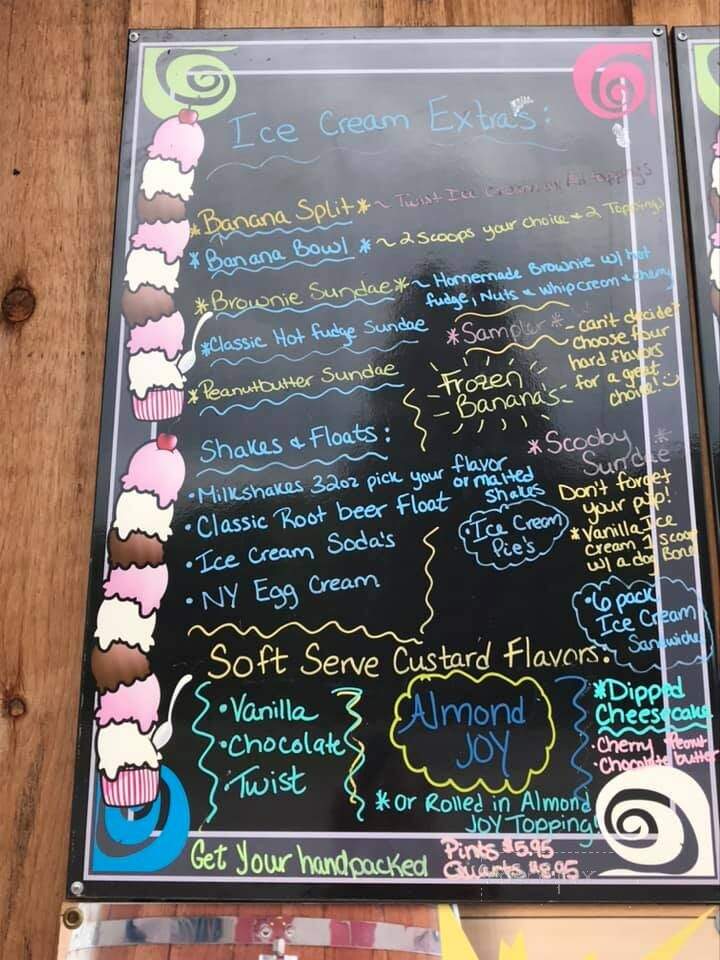 Ice Cream Extra's:
*Banana Split* ~ Twist Ice Cream
*Banana Bowl* ~ 2 scoops your choice + 2 Toppings
*Brownie Sundae* ~ Homemade Brownie w/ hot
fudge, Nuts & whipcream & cherry
*Classic Hot fudge Sundae
*Peanutbutter Sundae
*Sampler* - can't decide?
choose four
hard flavors
for a great
choice!
Frozen
Bananas
Shakes & Floats:
• Milkshakes 32oz pick your flavor
or malted
shakes
• Classic Root beer Float
• Ice Cream Soda's
• NY Egg Cream
• Ice Cream
Pie's
*Scooby*
Sundae
Don't forget
your pup!
*Vanilla Ice
Cream 1 scoop
w/ a dog Bone
• 6 pack
Ice Cream
Sandwiche
Soft Serve Custard Flavors.
• Vanilla
• Chocolate
• Twist
Almond
JOY
*Or Rolled in Almond
JOY Topping!
*Dipped
Cheesecake
• Cherry, Peanut
• Chocolate butter
Get Your handpacked
Pints $5.95
Quarts $8.95